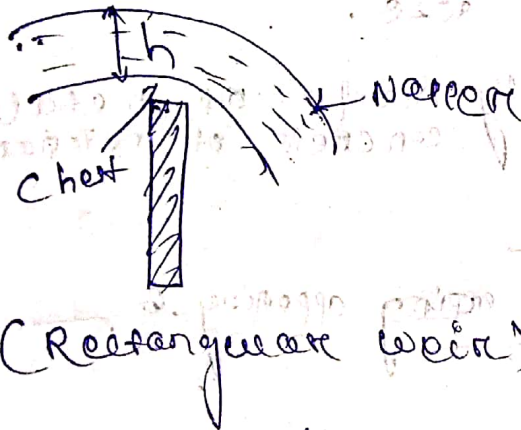 h
Nappen
Chest
(Rectangular weir)